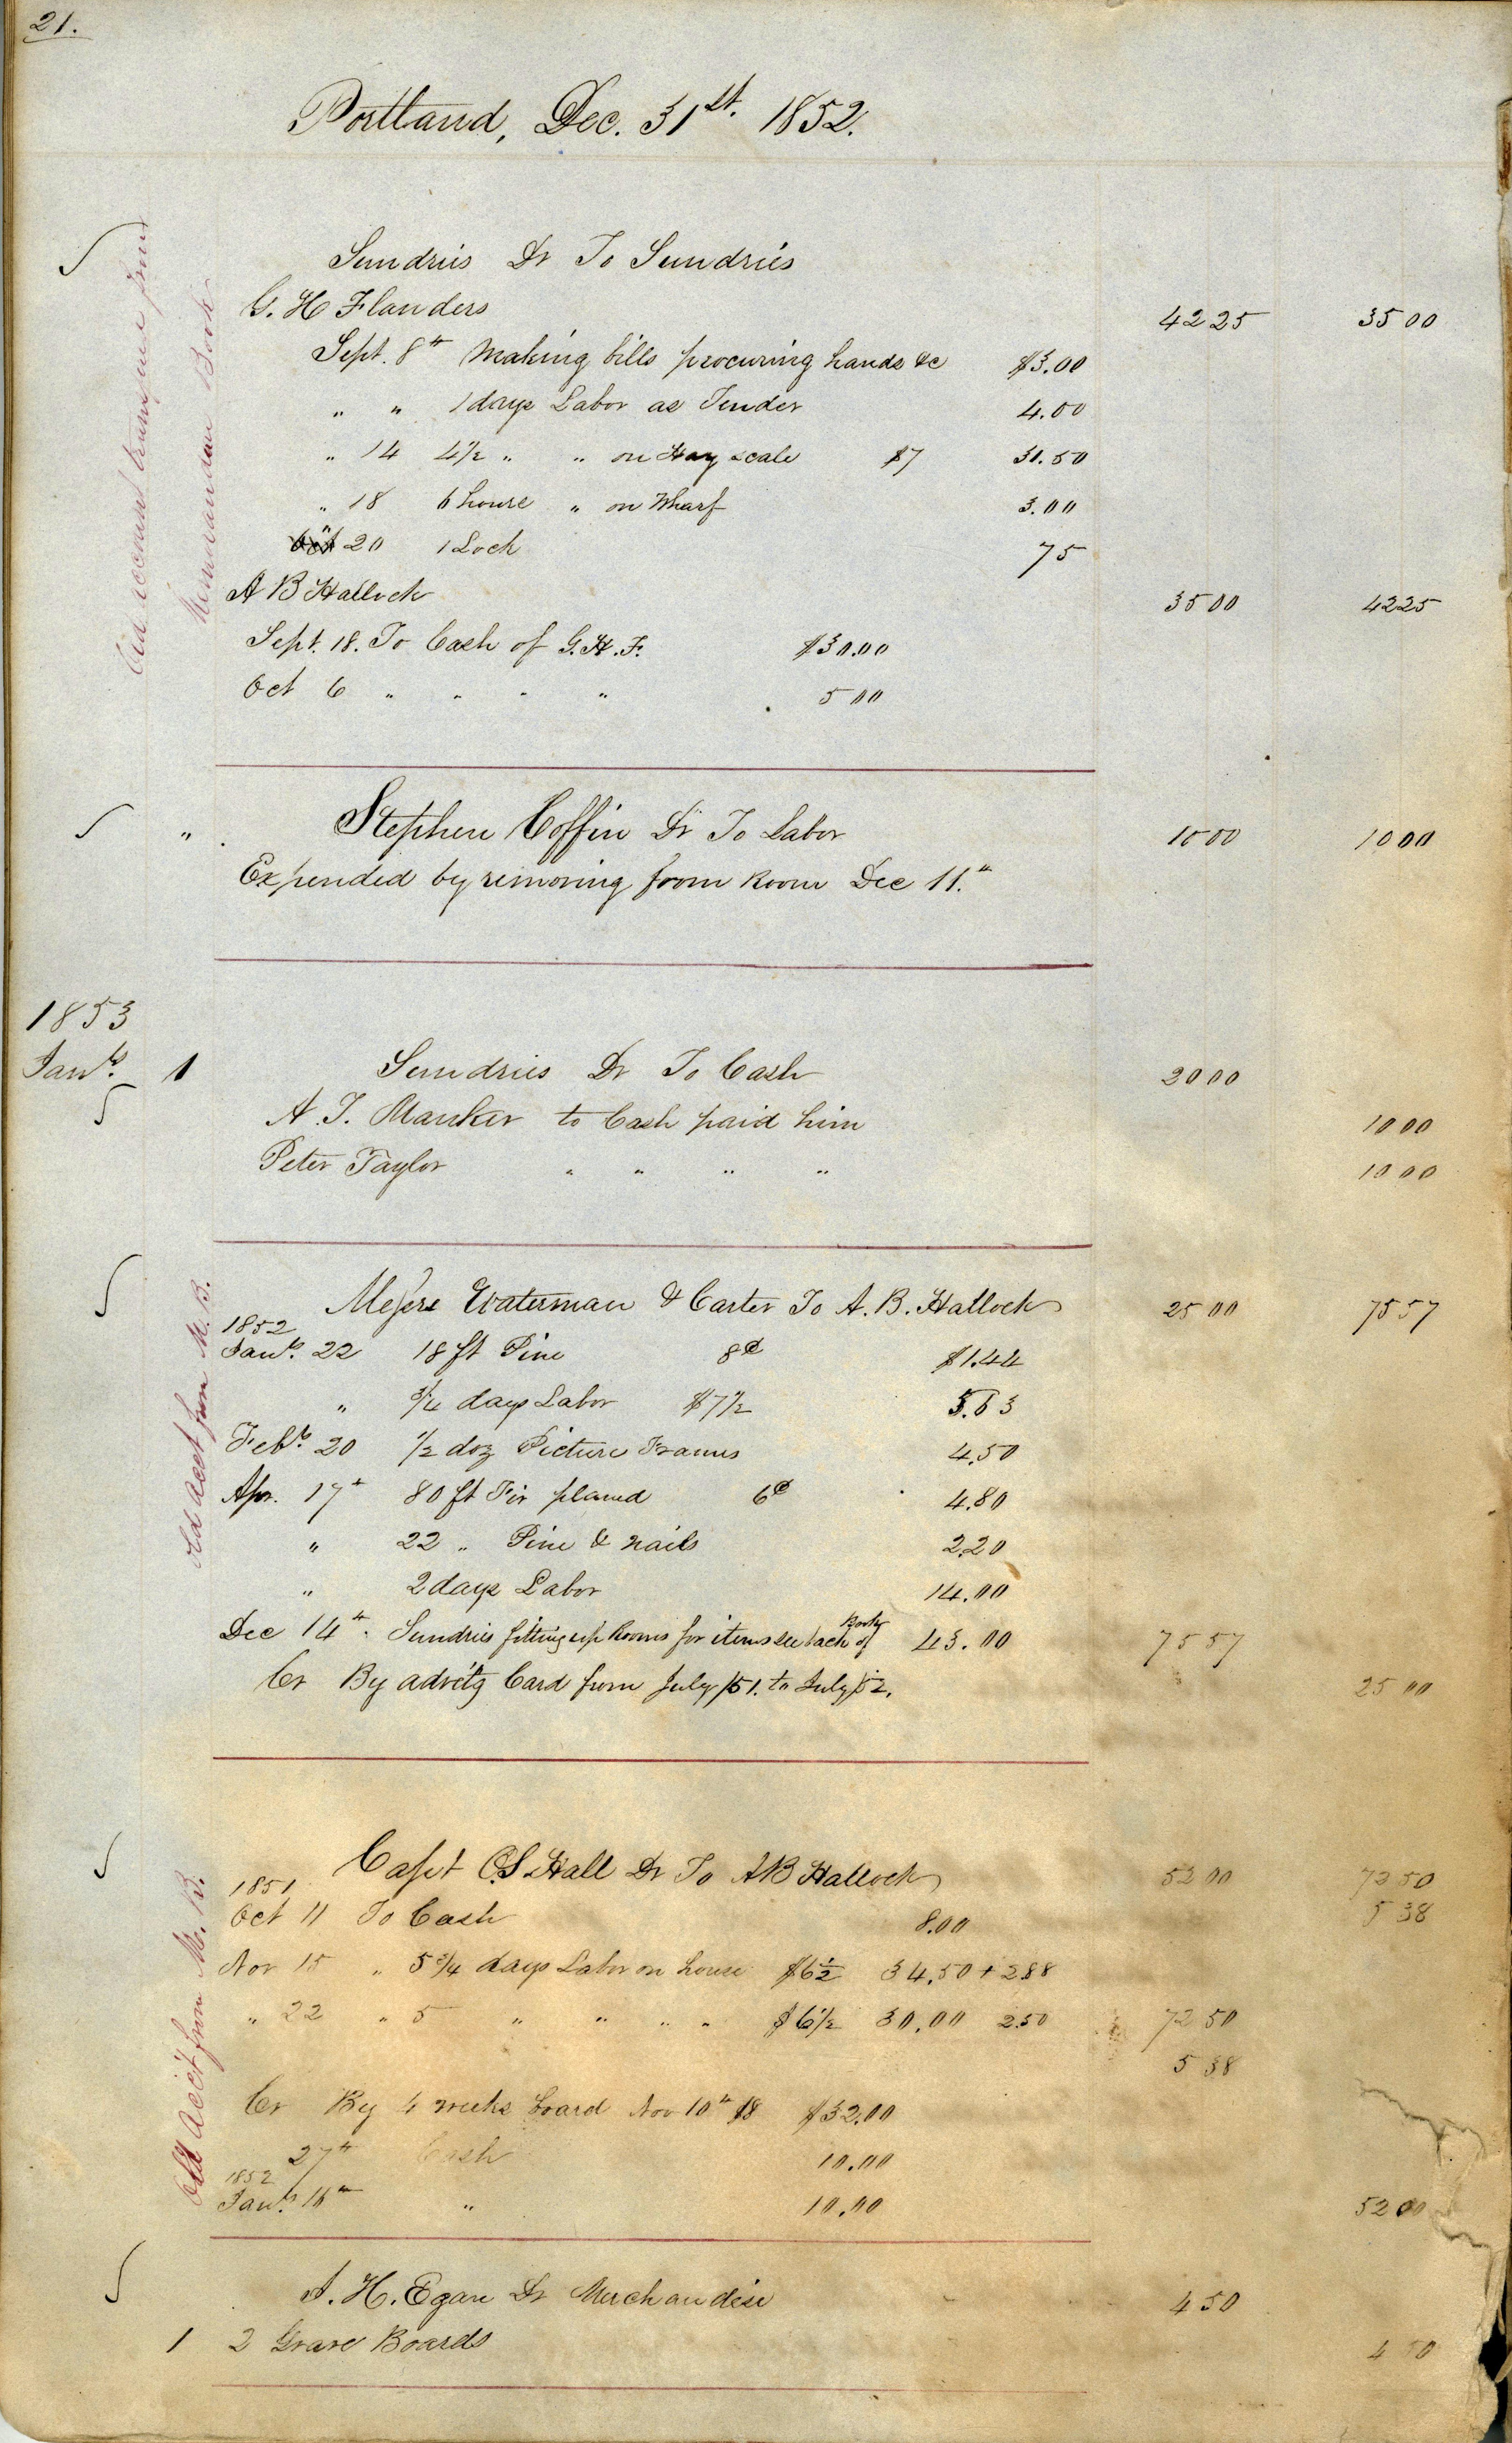 21.
Portland, Dec. 31st. 1852.
Old account transfered from
Memorandum Book
Sundries Dr To Sundries
G. H Flanders 42 25 35 00
Sept. 8th Making bills procuring hands &c $3.00
" " 1 days Labor as Tender 4.00
" 14 4½ " " on Hay scale $7 31.50
" 18 6 hours " on Wharf 3.00
" 20 1 Lock 75
A B Hallock 35 00 42 25
Sept. 18. To Cash of G. H. F. $30.00
Oct 6 " " " " 5 00
" Stephen Coffin Dr To Labor 10 00 10 00
Expended by removing from Room Dec 11.th
1853
Jany. 1 Sundries Dr To Cash 20 00
A. T. Manker to Cash paid him 10 00
Peter Taylor " " " " 10 00
Old Acct from M. B.
Messrs Waterman & Carter To A. B. Hallock 25 00 75 57
1852
Jany. 22 18 ft Pine 8¢ $1.44
" ¾ days Labor $7½ 5.63
Feby. 20 ½ doz Picture Frames 4.50
Apr. 17th 80 ft Fir planed 6¢ 4.80
" 22 " Pine & nails 2.20
" 2 days Labor 14.00
Dec 14th. Sundries fitting up Rooms for items see back of Book 43.00 75 57
Cr By advtg Card from July /51. to July /52. 25 00
Old Acct from M. B.
Capt C. S. Hall Dr To A B Hallock 52 00 72 50
1851 5 38
Oct 11 To Cash 8.00
Nov 15 " 5¾ days Labor on house $6½ 34.50 + 2.88
" 22 " 5 " " " " $6½ 30.00 2.50 72 50
5 38
Cr By 4 weeks board Nov 10th $8 $32.00
27th Cash 10.00
1852
Jany. 16th " 10.00 52 00
J. H. Egan Dr Merchandise 4 50
1 2 Grave Boards 4 50